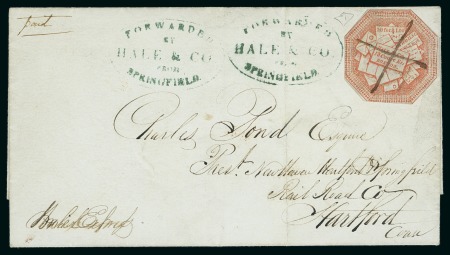 paid
FORWARDED
BY
HALE & CO.
FROM
SPRINGFIELD.
FORWARDED
BY
HALE & CO.
FROM
SPRINGFIELD.
Charles Pond Esquire
Prest. New Haven Hartford & Springfield
Rail Road Co
Hartford
Conn